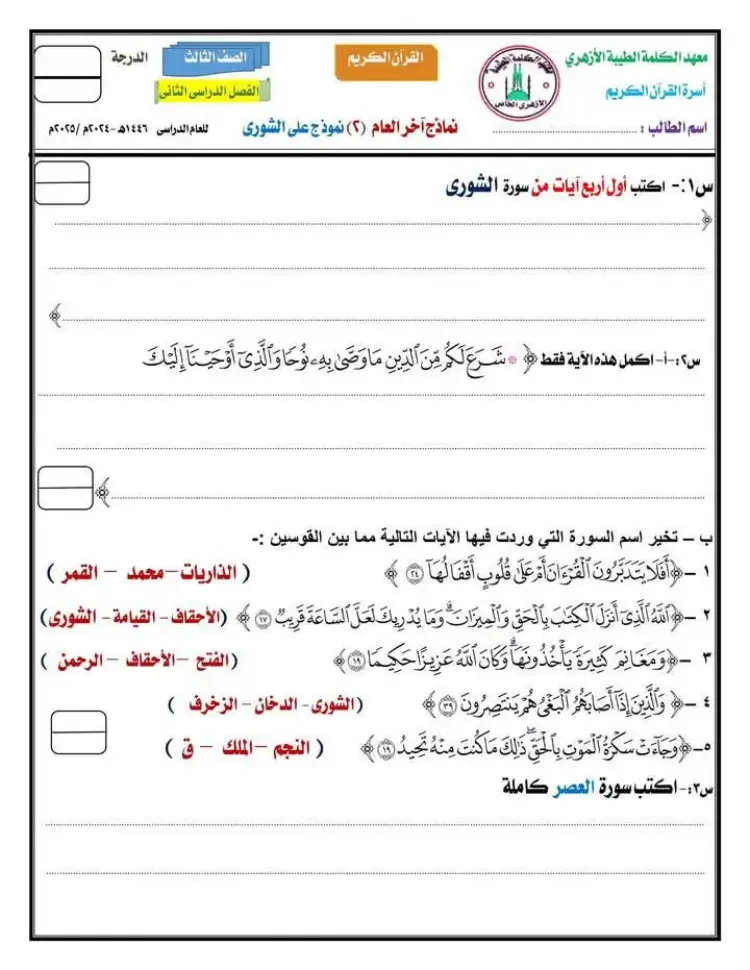 معهد الكلمة الطيبة الأزهري
القرآن الكريم
الصف الثالث
الدرجة
أسرة القرآن الكريم
الفصل الدراسى الثانى
اسم الطالب : ..............................
نماذج آخر العام (٢) نموذج على الشورى
للعام الدراسى ١٤٤٦هـ -٢٠٢٤م /٢٠٢٥م
س١:- اكتب أول أربع آيات من سورة الشورى
﴿
﴾
س٢:-أ- اكمل هذه الآية فقط ﴿ ۞ شَرَعَ لَكُم مِّنَ ٱلدِّينِ مَا وَصَّىٰ بِهِۦ نُوحًا وَٱلَّذِىٓ أَوۡحَيۡنَآ إِلَيۡكَ
﴾
ب – تخير اسم السورة التي وردت فيها الآيات التالية مما بين القوسين :-
١ –﴿أَفَلَا يَتَدَبَّرُونَ ٱلۡقُرۡءَانَ أَمۡ عَلَىٰ قُلُوبٍ أَقۡفَالُهَآ ٢٤ ﴾ ( الذاريات–محمد – القمر )
٢ –﴿ٱللَّهُ ٱلَّذِىٓ أَنزَلَ ٱلۡكِتَٰبَ بِٱلۡحَقِّ وَٱلۡمِيزَانَۗ وَمَا يُدۡرِيكَ لَعَلَّ ٱلسَّاعَةَ قَرِيبٞ ١٧ ﴾ (الأحقاف – القيامة– الشورى)
٣ –﴿وَمَغَانِمَ كَثِيرَةٗ يَأۡخُذُونَهَاۗ وَكَانَ ٱللَّهُ عَزِيزًا حَكِيمٗا ١٩﴾ (الفتح –الأحقاف – الرحمن )
٤ –﴿ وَٱلَّذِينَ إِذَآ أَصَابَهُمُ ٱلۡبَغۡىُ هُمۡ يَنتَصِرُونَ ٣٩﴾ (الشورى - الدخان – الزخرف )
٥–﴿وَجَآءَتۡ سَكۡرَةُ ٱلۡمَوۡتِ بِٱلۡحَقِّۖ ذَٰلِكَ مَا كُنتَ مِنۡهُ تَحِيدُ ١٩﴾ ( النجم –الملك – ق )
س٣:- اكتب سورة العصر كاملة